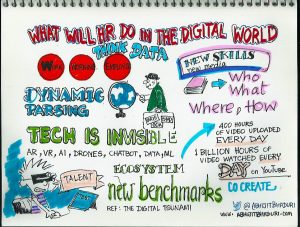 WHAT WILL HR DO IN THE DIGITAL WORLD
THINK DATA
WORK
WORKFORCE
WORKPLACE
NEW SKILLS
new media
Who
What
Where, How
DYNAMIC
PARSING
TECH IS INVISIBLE
AR, VR, AI, DRONES, CHATBOT, DATA, ML
400 HOURS
OF VIDEO UPLOADED
EVERY DAY
1 BILLION HOURS OF
VIDEO WATCHED EVERY
DAY on YouTube
ECOSYSTEM
TALENT
new benchmarks
CO CREATE
REF: THE DIGITAL TSUNAMI
@ABHIJITBHADURI
www.ABHIJITBHADURI.com